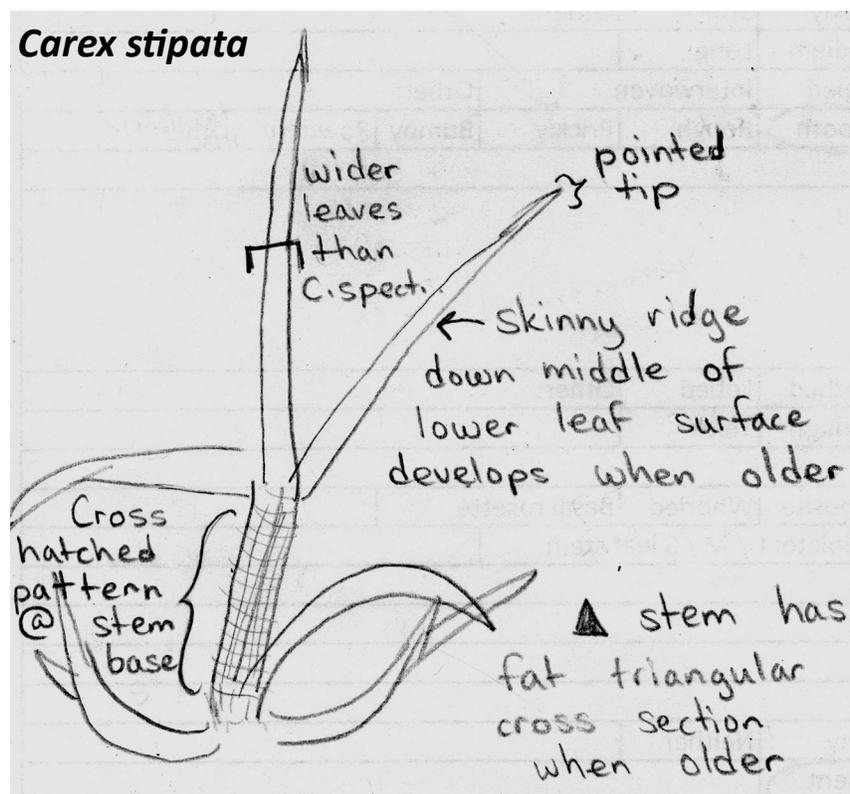 Carex stipata
wider
leaves
than
C. spect.
pointed
tip
← skinny ridge
down middle of
lower leaf surface
develops when older
Cross
hatched
pattern
@ stem
base
▲ stem has
fat triangular
cross section
when older